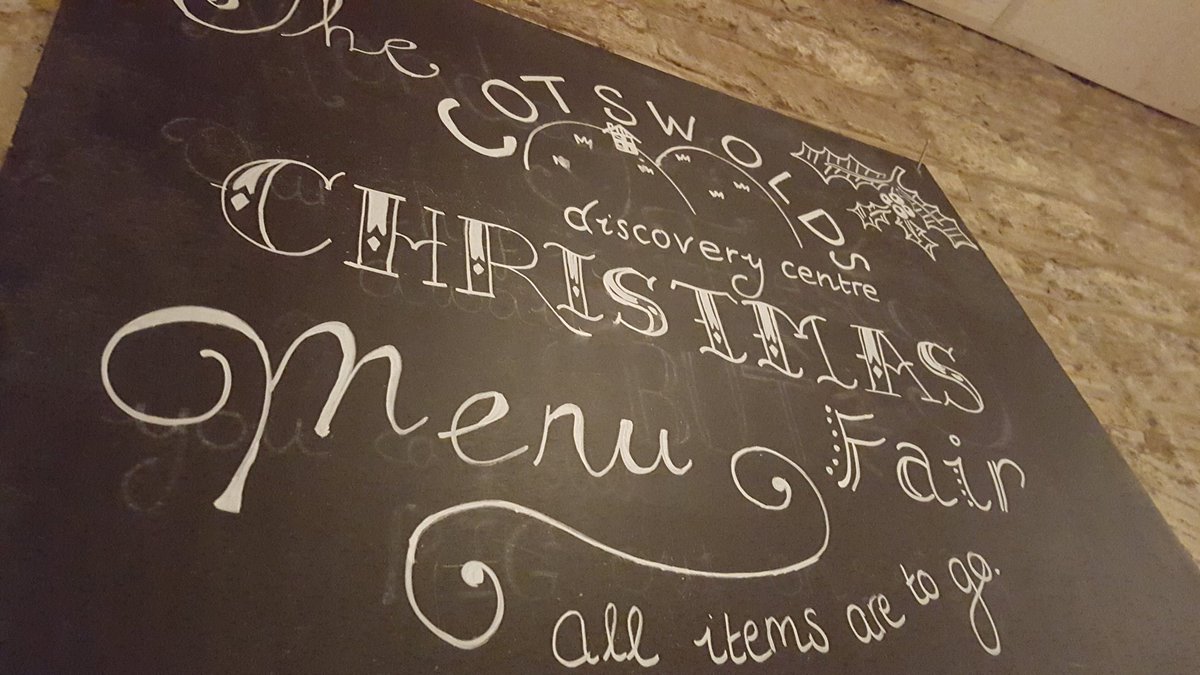 The
COTSWOLDS
discovery centre
CHRISTMAS
Fair
Menu
All items are to go.